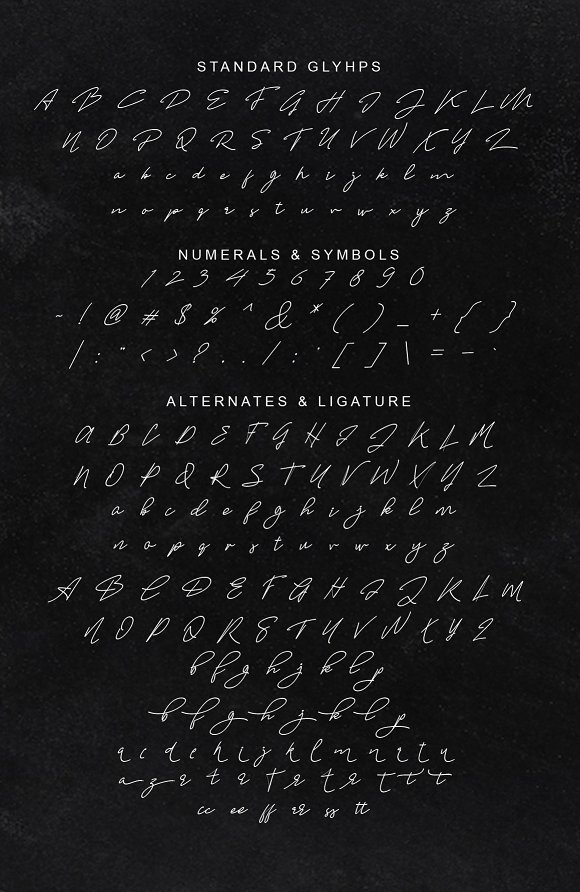 STANDARD GLYHPS
A B C D E F G H I J K L M
N O P Q R S T U V W X Y Z
a b c d e f g h i j k l m
n o p q r s t u v w x y z
NUMERALS & SYMBOLS
1 2 3 4 5 6 7 8 9 0
~ ! @ # $ % ^ & * ( ) _ + { }
| : " < > ? . . / ; ' [ ] \ = - `
ALTERNATES & LIGATURE
A B C D E F G H I J K L M
N O P Q R S T U V W X Y Z
a b c d e f g h i j k l m
n o p q r s t u v w x y z
A B C D E F G H I J K L M
N O P Q R S T U V W X Y Z
b f g h j k l p
b f g h j k l p
a c d e h i j k l m n r t u
a z r t r t r t r t t t
cc ee ff rr ss tt